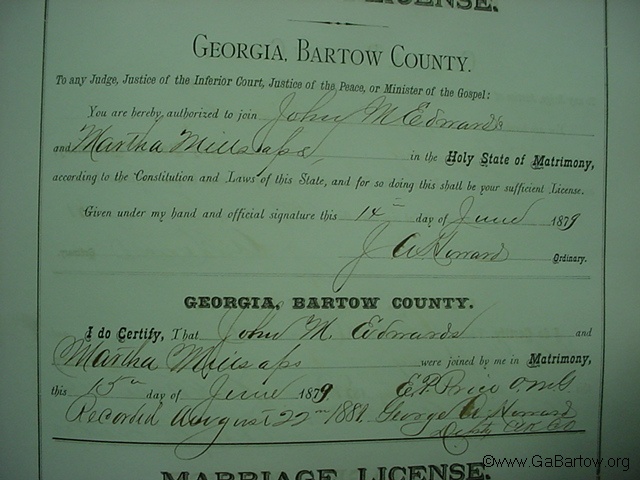 LICENSE.
GEORGIA, BARTOW COUNTY.
To any Judge, Justice of the Inferior Court, Justice of the Peace, or Minister of the Gospel:
You are hereby authorized to join John M Edwards
and Martha Millsaps, in the Holy State of Matrimony,
according to the Constitution and Laws of this State, and for so doing this shall be your sufficient License.
Given under my hand and official signature this 14th day of June 1879
J A Howard Ordinary.
GEORGIA, BARTOW COUNTY.
I do Certify, That John M. Edwards and
Martha Millsaps were joined by me in Matrimony,
this 15th day of June 1879. E. P. Price O M G
Recorded August 22nd 1881. George A Howard
Dept Clk CO
MARRIAGE LICENSE.
©www.GaBartow.org